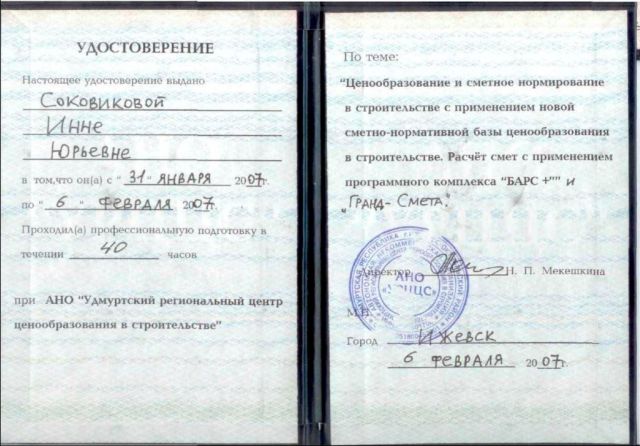 УДОСТОВЕРЕНИЕ
Настоящее удостоверение выдано
Соковиковой
Инне
Юрьевне
в том,что он(а) с "31" ЯНВАРЯ 2007г.
по "6" ФЕВРАЛЯ 2007г.
Проходил(а) профессиональную подготовку в
течении 40 часов
при АНО "Удмуртский региональный центр
ценообразования в строительстве"
По теме:
"Ценообразование и сметное нормирование
в строительстве с применением новой
сметно-нормативной базы ценообразования
в строительстве. Расчёт смет с применением
программного комплекса "БАРС +"" и
"Гранд-Смета".
Директор Н. П. Мекешкина
АНО
"УРЦЦС"
М.П.
Город Ижевск
6 ФЕВРАЛЯ 2007г.